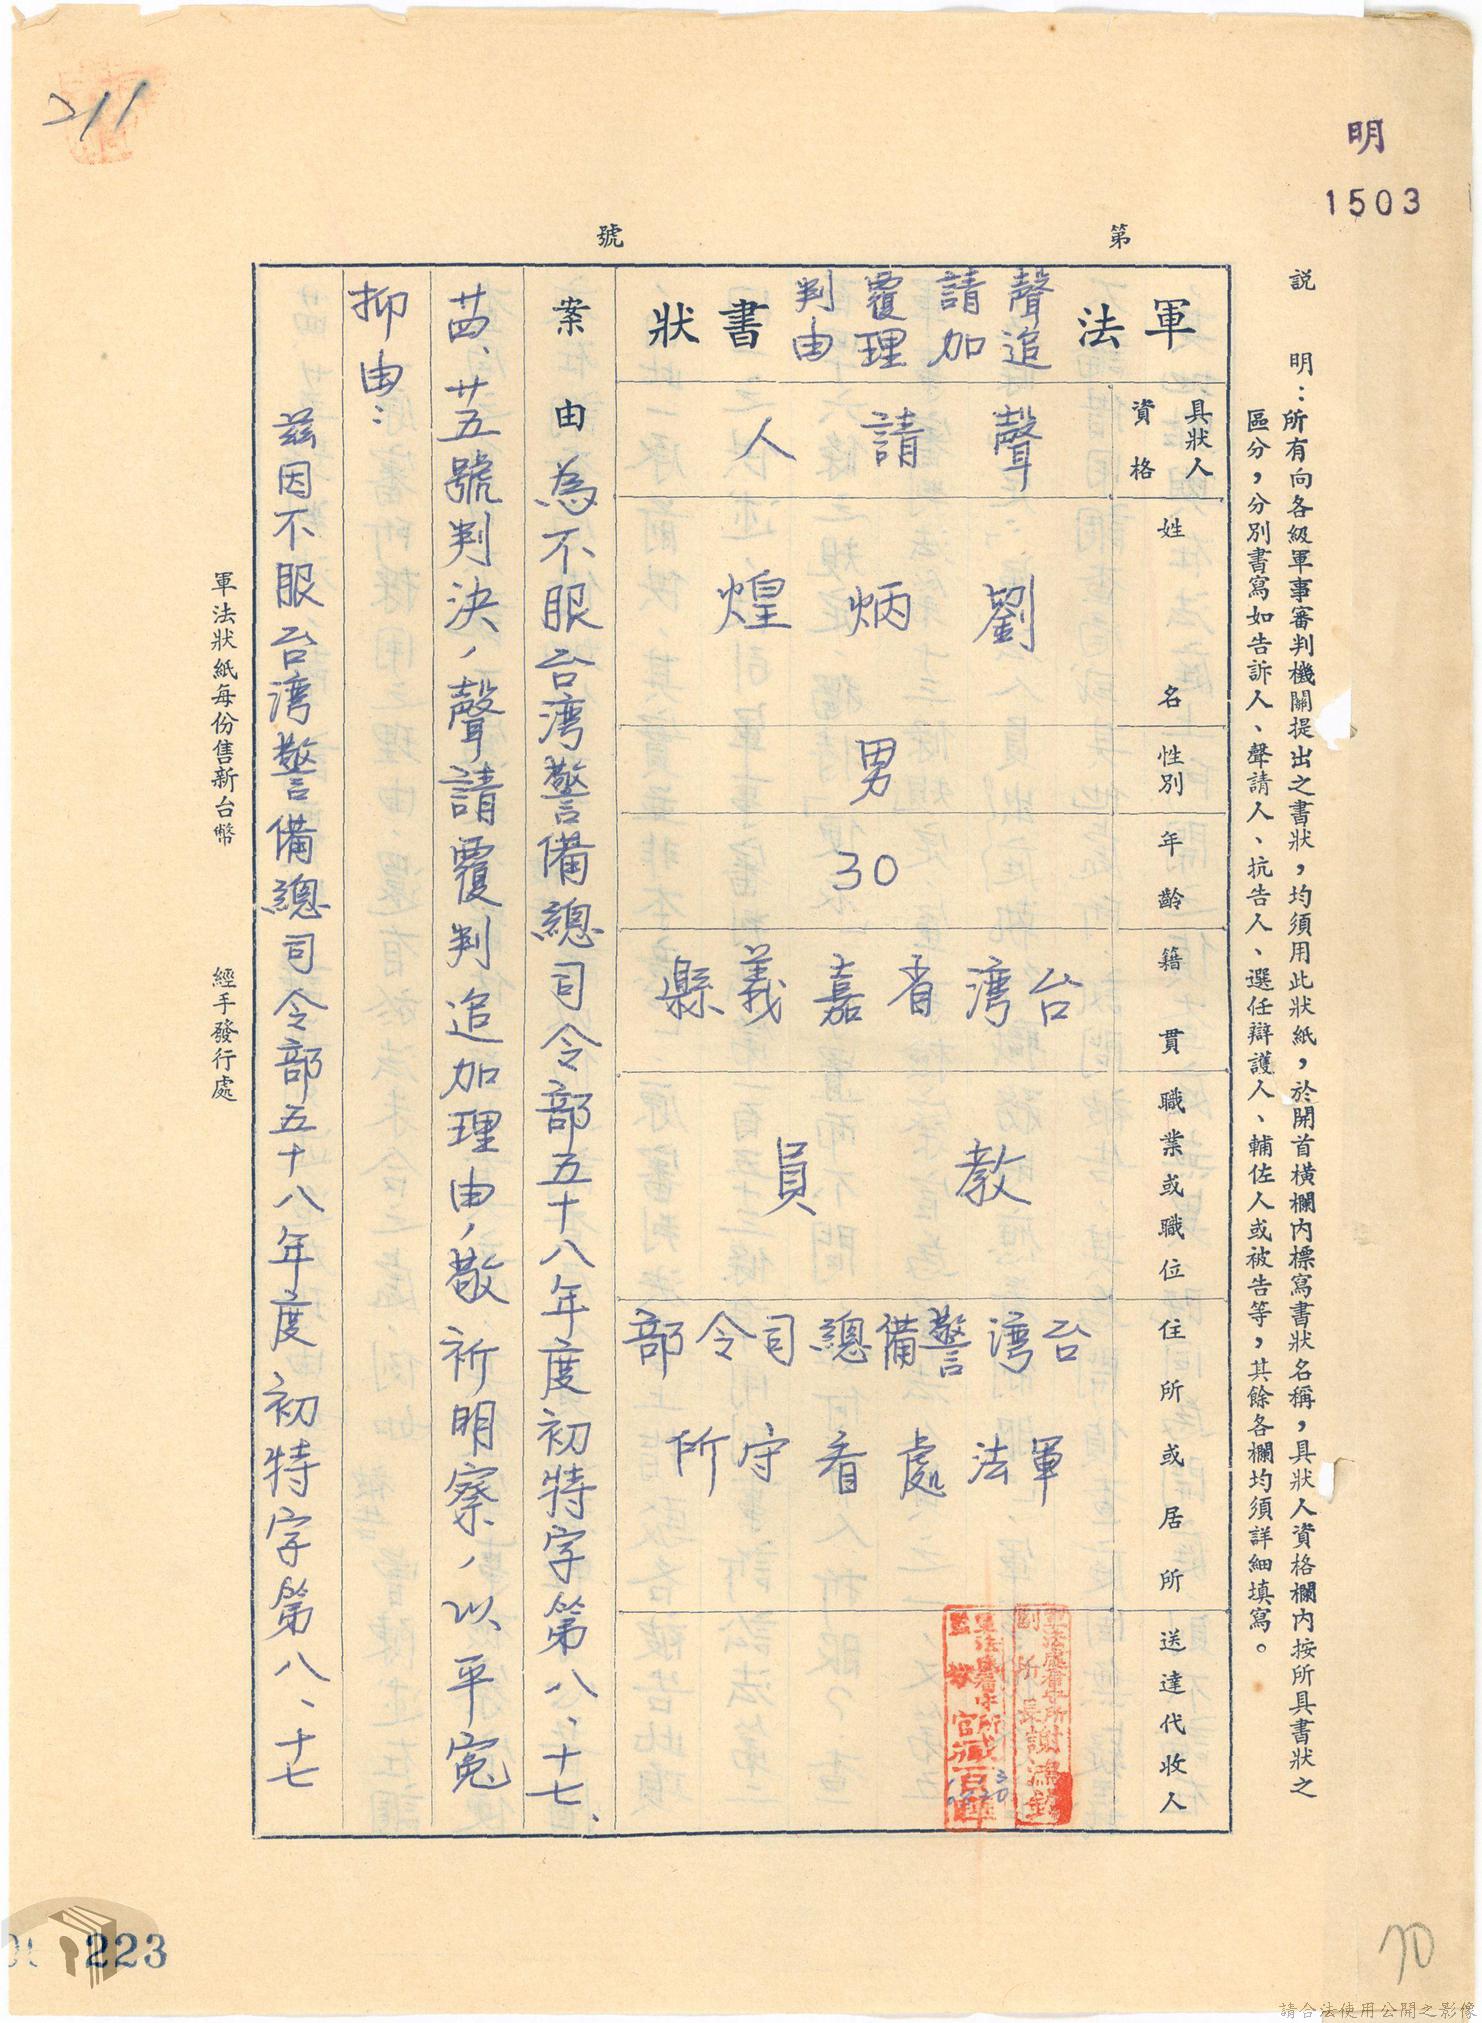 211
明
1503
第　　號
説　明：所有向各級軍事審判機關提出之書狀，均須用此狀紙，於開首橫欄內標寫書狀名稱，具狀人資格欄內按所具書狀之
區分，分別書寫如告訴人、聲請人、抗告人、選任辯護人、輔佐人或被告等，其餘各欄均須詳細填寫。
軍法聲請覆判追加理由書狀
具狀人資格
聲請人
姓名
劉炳煌
性別
男
年齡
30
籍貫
台湾省嘉義縣
職業或職位
教員
住所或居所
台湾警備總司令部
軍法處看守所
送達代收人
軍法處看守所
副所長謝鴻
軍法處看守所
監獄官臧百
案由
為不服台湾警備總司令部五十八年度初特字第八、十七、
廿四、廿五號判決，聲請覆判追加理由，敬祈明察，以平冤
抑由：
茲因不服台湾警備總司令部五十八年度初特字第八、十七
軍法狀紙每份售新台幣　　經手發行處
223
70
請合法使用公開之影像